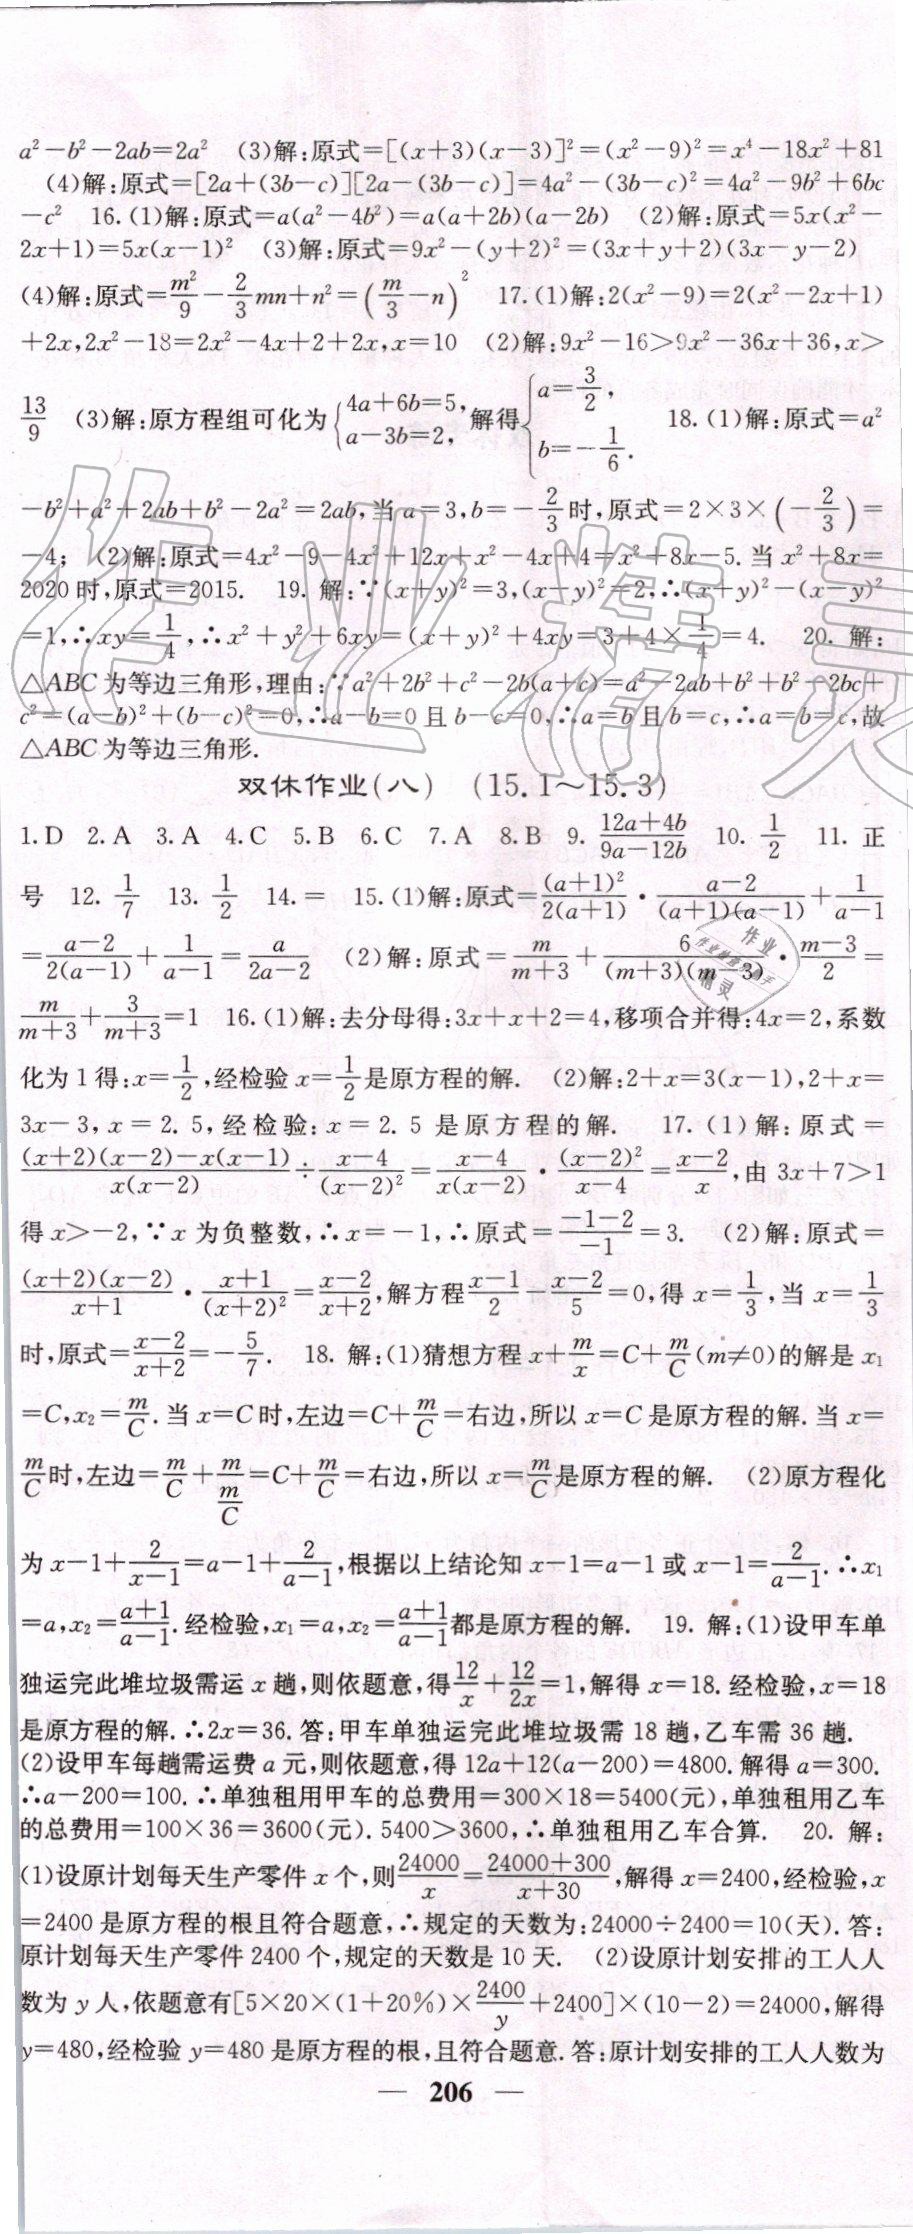 a²-b²-2ab=2a² (3)解:原式=[(x+3)(x-3)]²=(x²-9)²=x⁴-18x²+81
(4)解:原式=[2a+(3b-c)][2a-(3b-c)]=4a²-(3b-c)²=4a²-9b²+6bc
-c² 16.(1)解:原式=a(a²-4b²)=a(a+2b)(a-2b) (2)解:原式=5x(x²-
2x+1)=5x(x-1)² (3)解:原式=9x²-(y+2)²=(3x+y+2)(3x-y-2)
(4)解:原式=m²/9-2/3mn+n²=(m/3-n)² 17.(1)解:2(x²-9)=2(x²-2x+1)
+2x,2x²-18=2x²-4x+2+2x,x=10 (2)解:9x²-16>9x²-36x+36,x>
13/9 (3)解:原方程组可化为{4a+6b=5,a-3b=2,解得{a=3/2,b=-1/6. 18.(1)解:原式=a²
-b²+a²+2ab+b²-2a²=2ab,当a=3,b=-2/3时,原式=2×3×(-2/3)=
-4; (2)解:原式=4x²-9-4x²+12x+x²-4x+4=x²+8x-5.当x²+8x=
2020时,原式=2015. 19. 解:∵(x+y)²=3,(x-y)²=2,∴(x+y)²-(x-y)²
=1,∴xy=1/4,∴x²+y²+6xy=(x+y)²+4xy=3+4×1/4=4. 20. 解:
△ABC为等边三角形,理由:∵a²+2b²+c²-2b(a+c)=a²-2ab+b²+b²-2bc+
c²=(a-b)²+(b-c)²=0,∴a-b=0且b-c=0,∴a=b且b=c,∴a=b=c,故
△ABC为等边三角形.
双休作业(八) (15.1~15.3)
1.D 2.A 3.A 4.C 5.B 6.C 7.A 8.B 9. (12a+4b)/(9a-12b) 10. 1/2 11. 正
号 12. 1/7 13. 1/2 14.= 15.(1)解:原式=(a+1)²/2(a+1)·(a-2)/(a+1)(a-1)+1/(a-1)
=(a-2)/2(a-1)+1/(a-1)=a/(2a-2) (2)解:原式=m/(m+3)+6/(m+3)(m-3)·(m-3)/2=
m/(m+3)+3/(m+3)=1 16.(1)解:去分母得:3x+x+2=4,移项合并得:4x=2,系数
化为1得:x=1/2,经检验x=1/2是原方程的解. (2)解:2+x=3(x-1),2+x=
3x-3,x=2.5,经检验:x=2.5是原方程的解. 17.(1)解:原式=
[(x+2)(x-2)-x(x-1)]/x(x-2)÷(x-4)/(x-2)²=(x-4)/x(x-2)·(x-2)²/(x-4)=(x-2)/x,由3x+7>1
得x>-2,∵x为负整数,∴x=-1,∴原式=(-1-2)/-1=3. (2)解:原式=
(x+2)(x-2)/(x+1)·(x+1)/(x+2)²=(x-2)/(x+2),解方程(x-1)/2-(x-2)/5=0,得x=1/3,当x=1/3
时,原式=(x-2)/(x+2)=-5/7. 18. 解:(1)猜想方程x+m/x=C+m/C(m≠0)的解是x₁
=C,x₂=m/C.当x=C时,左边=C+m/C=右边,所以x=C是原方程的解.当x=
m/C时,左边=m/C+m/(m/C)=C+m/C=右边,所以x=m/C是原方程的解. (2)原方程化
为x-1+2/(x-1)=a-1+2/(a-1),根据以上结论知x-1=a-1或x-1=2/(a-1).∴x₁
=a,x₂=(a+1)/(a-1).经检验,x₁=a,x₂=(a+1)/(a-1)都是原方程的解. 19. 解:(1)设甲车单
独运完此堆垃圾需运x趟,则依题意,得12/x+12/2x=1,解得x=18.经检验,x=18
是原方程的解.∴2x=36.答:甲车单独运完此堆垃圾需18趟,乙车需36趟.
(2)设甲车每趟需运费a元,则依题意,得12a+12(a-200)=4800.解得a=300.
∴a-200=100.∴单独租用甲车的总费用=300×18=5400(元),单独租用乙车
的总费用=100×36=3600(元).5400>3600,∴单独租用乙车合算. 20. 解:
(1)设原计划每天生产零件x个,则24000/x=(24000+300)/(x+30),解得x=2400,经检验,x
=2400是原方程的根且符合题意,∴规定的天数为:24000÷2400=10(天).答:
原计划每天生产零件2400个,规定的天数是10天. (2)设原计划安排的工人人
数为y人,依题意有[5×20×(1+20%)×2400/y+2400]×(10-2)=24000,解得
y=480,经检验y=480是原方程的根,且符合题意.答:原计划安排的工人人数为
— 206 —
作业精灵
作业
精灵